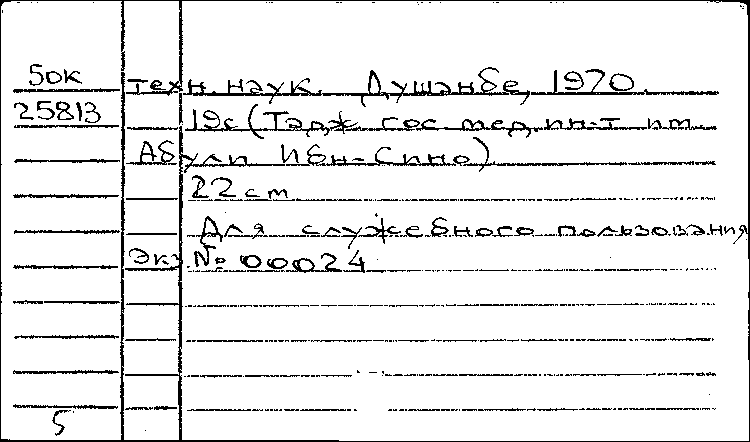 50к техн. наук. Душанбе, 1970.
25813 19с (Тадж. гос. мед. ин-т им.
Абули Ибн-Сино)
22 cm
Для служебного пользования
Экз. № 00024
5